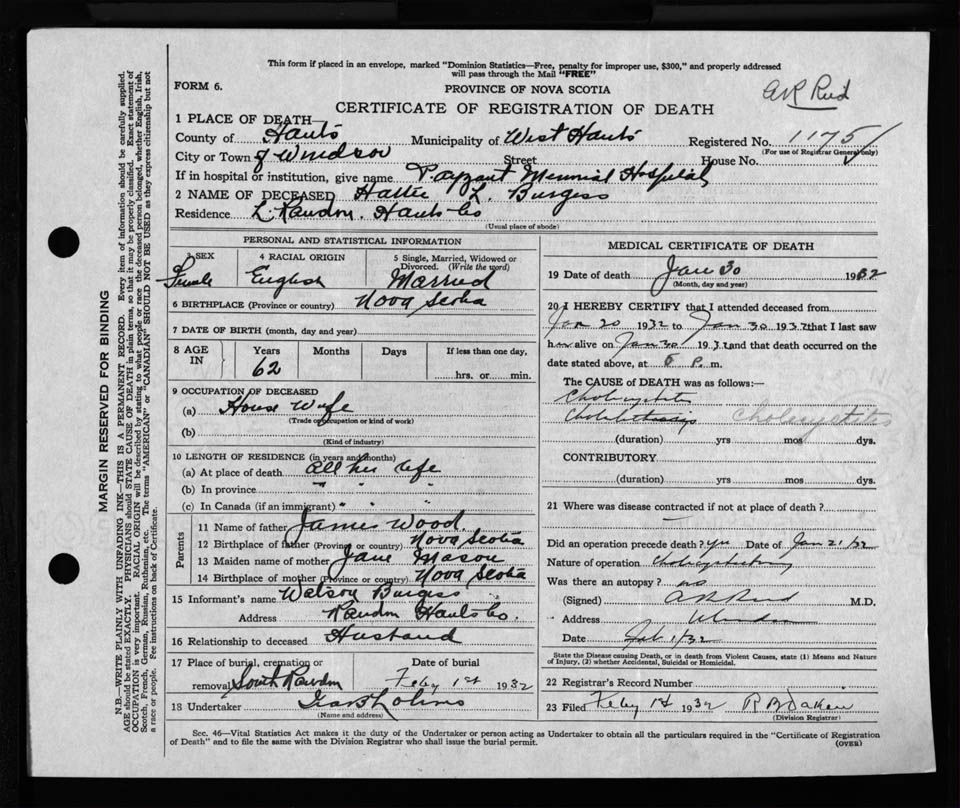 This form if placed in an envelope, marked "Dominion Statistics—Free, penalty for improper use, $300," and properly addressed
will pass through the Mail "FREE"
FORM 6.
PROVINCE OF NOVA SCOTIA
CERTIFICATE OF REGISTRATION OF DEATH
1 PLACE OF DEATH—
County of Hants Municipality of West Hants Registered No. 1175
(For use of Registrar General only)
City or Town of Windsor Street House No.
If in hospital or institution, give name Payzant Memorial Hospital
2 NAME OF DECEASED Hattie L. Burgess
Residence Rawdon. Hants Co
(Usual place of abode)
PERSONAL AND STATISTICAL INFORMATION
3 SEX
Female
4 RACIAL ORIGIN
English
5 Single, Married, Widowed or
Divorced. (Write the word)
Married
6 BIRTHPLACE (Province or country) Nova Scotia
7 DATE OF BIRTH (month, day and year)
8 AGE IN
Years
62
Months
Days
If less than one day,
hrs. or min.
9 OCCUPATION OF DECEASED
(a) House Wife
(Trade occupation or kind of work)
(b)
(Kind of industry)
10 LENGTH OF RESIDENCE (in years and months)
(a) At place of death all her life
(b) In province " " "
(c) In Canada (if an immigrant) " "
Parents
11 Name of father James Wood.
12 Birthplace of father (Province or country) Nova Scotia
13 Maiden name of mother Jane Mason
14 Birthplace of mother (Province or country) Nova Scotia
15 Informant's name Watson Burgess
Address Rawdon Hants Co.
16 Relationship to deceased Husband
17 Place of burial, cremation or
removal South Rawdon
Date of burial
Feby 1st 1932
18 Undertaker
(Name and address)
MEDICAL CERTIFICATE OF DEATH
19 Date of death Jan 30 1932
(Month, day and year)
20 I HEREBY CERTIFY that I attended deceased from
Jan 20 1932 to Jan 30 1932 that I last saw
her alive on Jan 30 1932 and that death occurred on the
date stated above, at P. m.
The CAUSE of DEATH was as follows:—
Cholecystitis
Cholelithiasis Cholecystitis
(duration) yrs mos dys.
CONTRIBUTORY
(duration) yrs mos dys.
21 Where was disease contracted if not at place of death?
Did an operation precede death? yes Date of Jan 21/32
Nature of operation
Was there an autopsy? no
(Signed) M.D.
Address Windsor
Date Feb 1/32
State the Disease causing Death, or in death from Violent Causes, state (1) Means and Nature
of Injury, (2) whether Accidental, Suicidal or Homicidal.
22 Registrar's Record Number
23 Filed Feby 1st 1932
(Division Registrar)
Sec. 46—Vital Statistics Act makes it the duty of the Undertaker or person acting as Undertaker to obtain all the particulars required in the "Certificate of Registration
of Death" and to file the same with the Division Registrar who shall issue the burial permit.
(OVER)
MARGIN RESERVED FOR BINDING
N.B.—WRITE PLAINLY WITH UNFADING INK—THIS IS A PERMANENT RECORD. Every item of information should be carefully supplied.
AGE should be stated EXACTLY. PHYSICIANS should STATE CAUSE OF DEATH in plain terms, so that it may be properly classified. Exact statement of
OCCUPATION is very important. RACIAL ORIGIN will be described by stating to what people or race the deceased person belonged, whether English, Irish,
Scotch, French, German, Russian, Ruthenian, etc. The terms "AMERICAN" or "CANADIAN" SHOULD NOT BE USED as they express citizenship but not
a race or people. See instructions on back of Certificate.